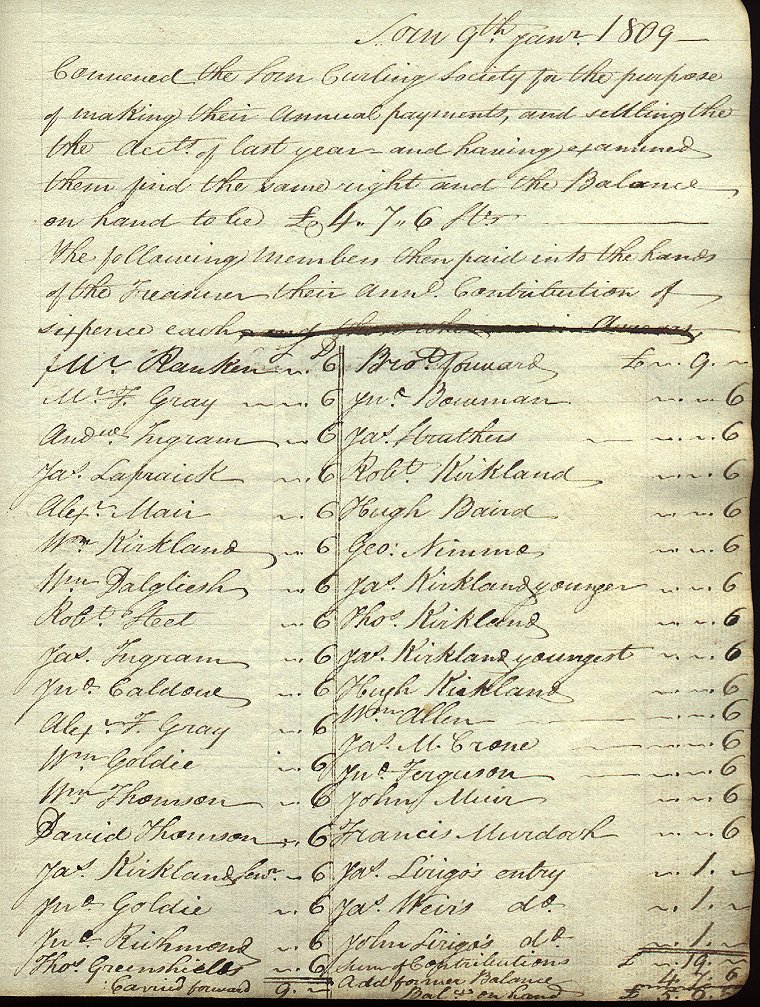 Sorn 9th Janr. 1809
Convened the Sorn Curling Society for the purpose
of making their Annual payments, and settling the
the Accts. of last year - and having examined
them find the same right and the Balance
on hand to be £4 „ 7 „ 6 Str
The following Members then paid into the hands
of the Treasurer their annl. Contribution of
sixpence each
D
Mr. Ranken „ 6
Mr. F. Gray „ „ 6
Andw. Ingram „ 6
Jas. Lapraick „ 6
Alexr. Mair „ 6
Wm. Kirkland „ 6
Wm. Dalgliesh „ 6
Robt. Steel „ 6
Jas. Ingram „ 6
Jno. Caldow „ 6
Alexr. F. Gray „ 6
Wm. Goldie „ 6
Wm. Thomson „ 6
David Thomson „ 6
Jas. Kirkland Senr. „ 6
Jno. Goldie „ 6
Jno. Richmond „ 6
Thos. Greenshields „ 6
Carried forward 9 „
Brot. forward £ „ 9 „
Jno. Bowman „ „ 6
Jas. Strathers „ „ 6
Robt. Kirkland „ „ 6
Hugh Baird „ „ 6
Geo: Nimmo „ „ 6
Jas. Kirkland younger „ „ 6
Thos. Kirkland „ „ 6
Jas. Kirkland youngest „ „ 6
Hugh Kirkland „ „ 6
Wm. Allen „ „ 6
Jas. McCrone „ „ 6
Jno. Ferguson „ „ 6
John Muir „ „ 6
Francis Murdoch „ „ 6
Jas. entry „ 1 „
Jas. Weirs do. „ 1 „
John do. „ 1 „
Sum of Contributions £ „ 19 „
Add former Balance 4 7 6
Balce. on hand 5 6 6